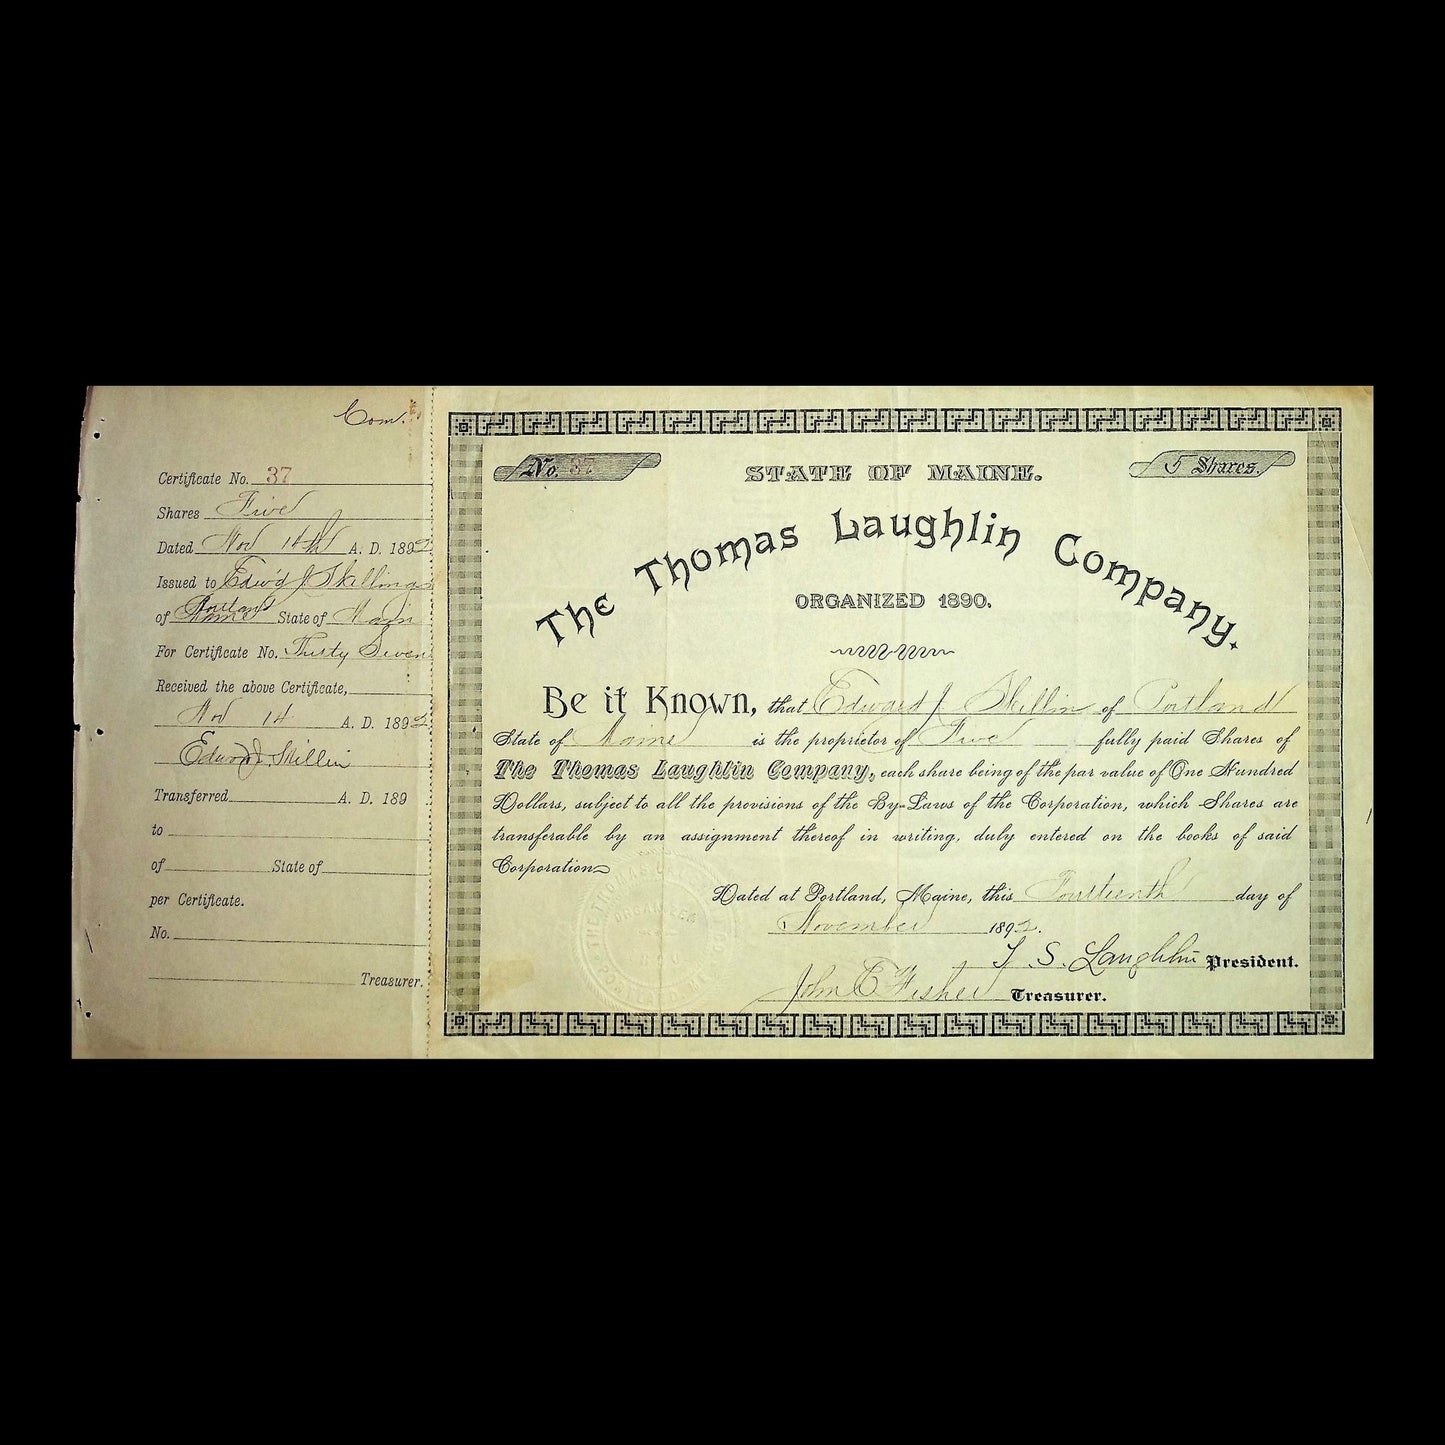 Com.
Certificate No. 37
Shares Five
Dated Nov 14th A. D. 1892
Issued to Edw'd J Skillings
Portland
of Maine State of Main
For Certificate No. Thirty Seven
Received the above Certificate,
Nov 14 A. D. 1892
Edward J. Skillin
Transferred A. D. 189
to
of State of
per Certificate.
No.
Treasurer.
No. 37
STATE OF MAINE.
5 Shares.
The Thomas Laughlin Company.
ORGANIZED 1890.
Be it Known, that Edward J Skillin of Portland
State of Maine is the proprietor of Five fully paid Shares of
The Thomas Laughlin Company, each share being of the par value of One Hundred
Dollars, subject to all the provisions of the By-Laws of the Corporation, which Shares are
transferable by an assignment thereof in writing, duly entered on the books of said
Corporation
Dated at Portland, Maine, this Fourteenth day of
November 1892.
T. S. Laughlin President.
John C Treasurer.